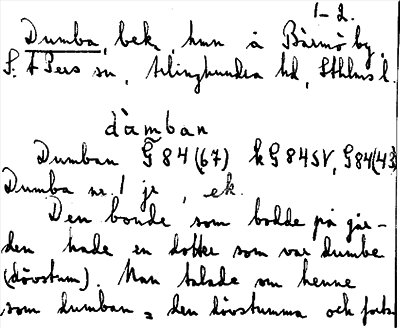 1-2.
Dumba, bek., hmn å Bärmö by,
S:t Pers sn, Erlinghundra hd, Sthlms l.
dàmban
Dumban G 84 (67) k G 84 SV, G84(43)
Dumba nr 1 je, ek.
Den bonde som bodde på går-
den hade en dotter som var dumbe
(dövstum). Man talade om henne
som dumban = den dövstumma och forts